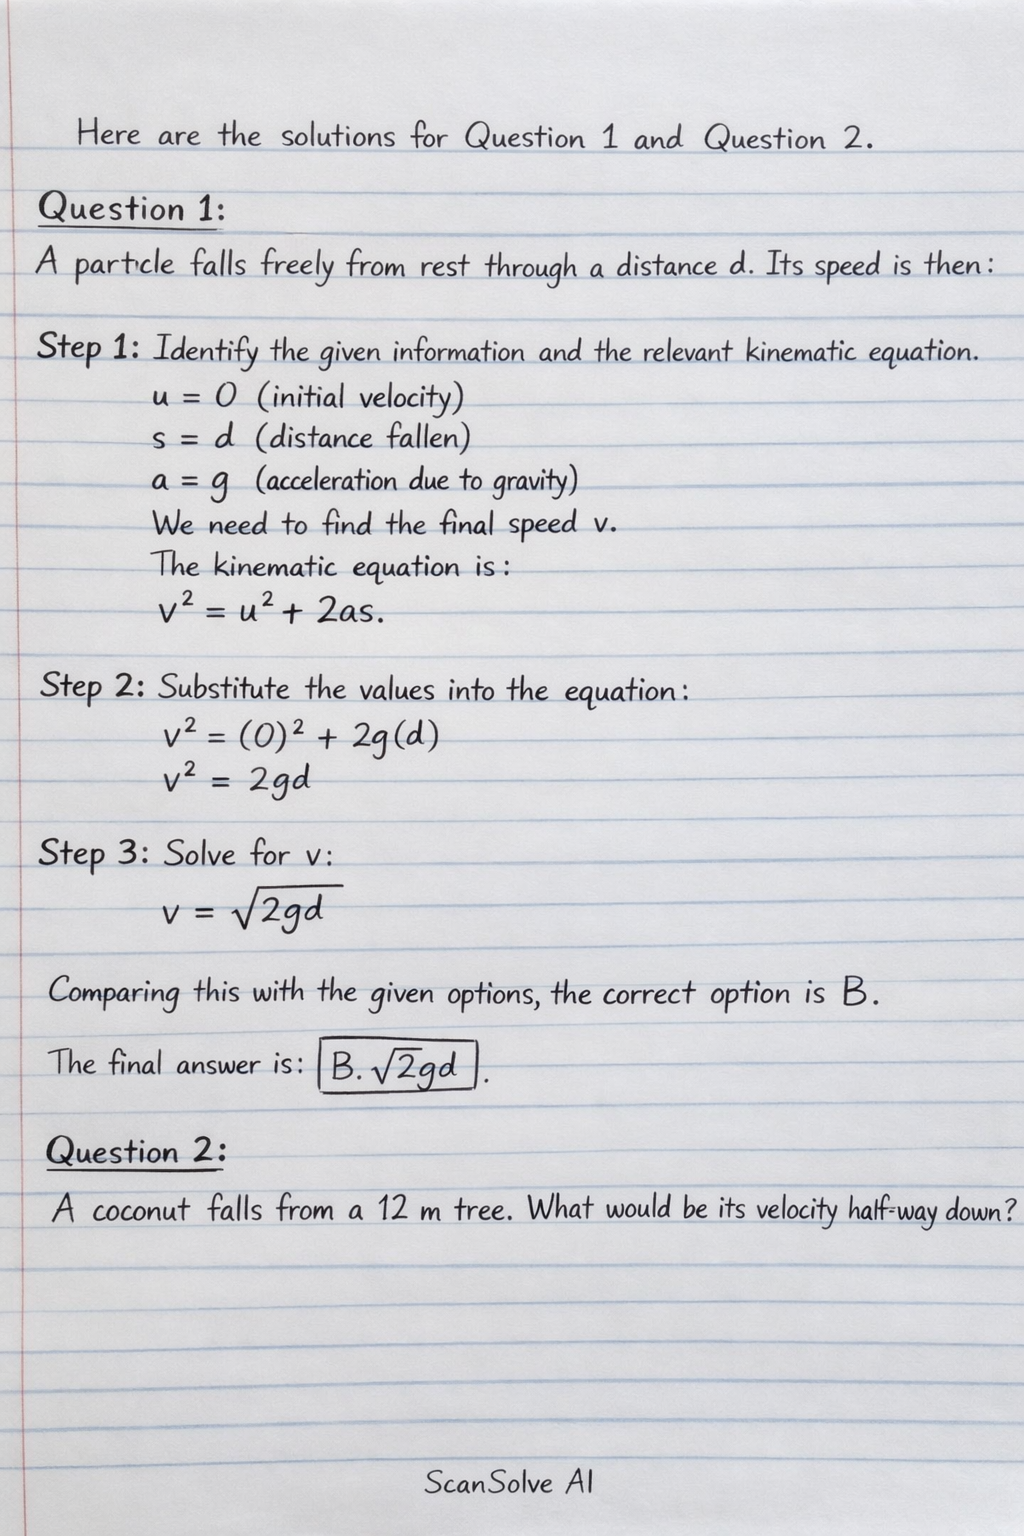 Here are the solutions for Question 1 and Question 2.
Question 1:
A particle falls freely from rest through a distance d. Its speed is then:
Step 1: Identify the given information and the relevant kinematic equation.
u = 0 (initial velocity)
s = d (distance fallen)
a = g (acceleration due to gravity)
We need to find the final speed v.
The kinematic equation is:
v² = u² + 2as.
Step 2: Substitute the values into the equation:
v² = (0)² + 2g(d)
v² = 2gd
Step 3: Solve for v:
v = √2gd
Comparing this with the given options, the correct option is B.
The final answer is: B. √2gd.
Question 2:
A coconut falls from a 12 m tree. What would be its velocity half-way down?
ScanSolve AI